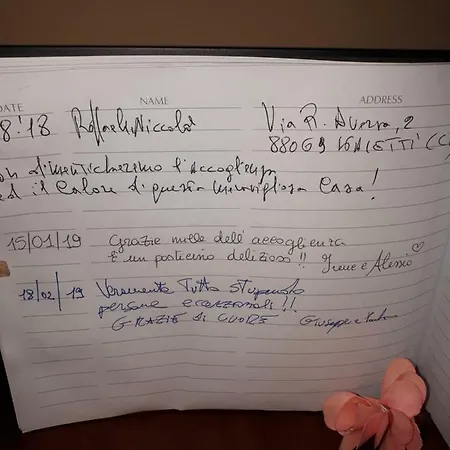 DATE NAME ADDRESS
8:18 Raffaele Niccolò Via P. 2
88069
dimenticheremo l'accoglienza
ed il calore di questa meravigliosa Casa!
15/01/19 Grazie mille dell'accoglienza
È un posticino delizioso!! Irene e Alessio
18/02/19 Veramente Tutto stupendo
persone eccezionali!!
GRAZIE DI CUORE Giuseppe